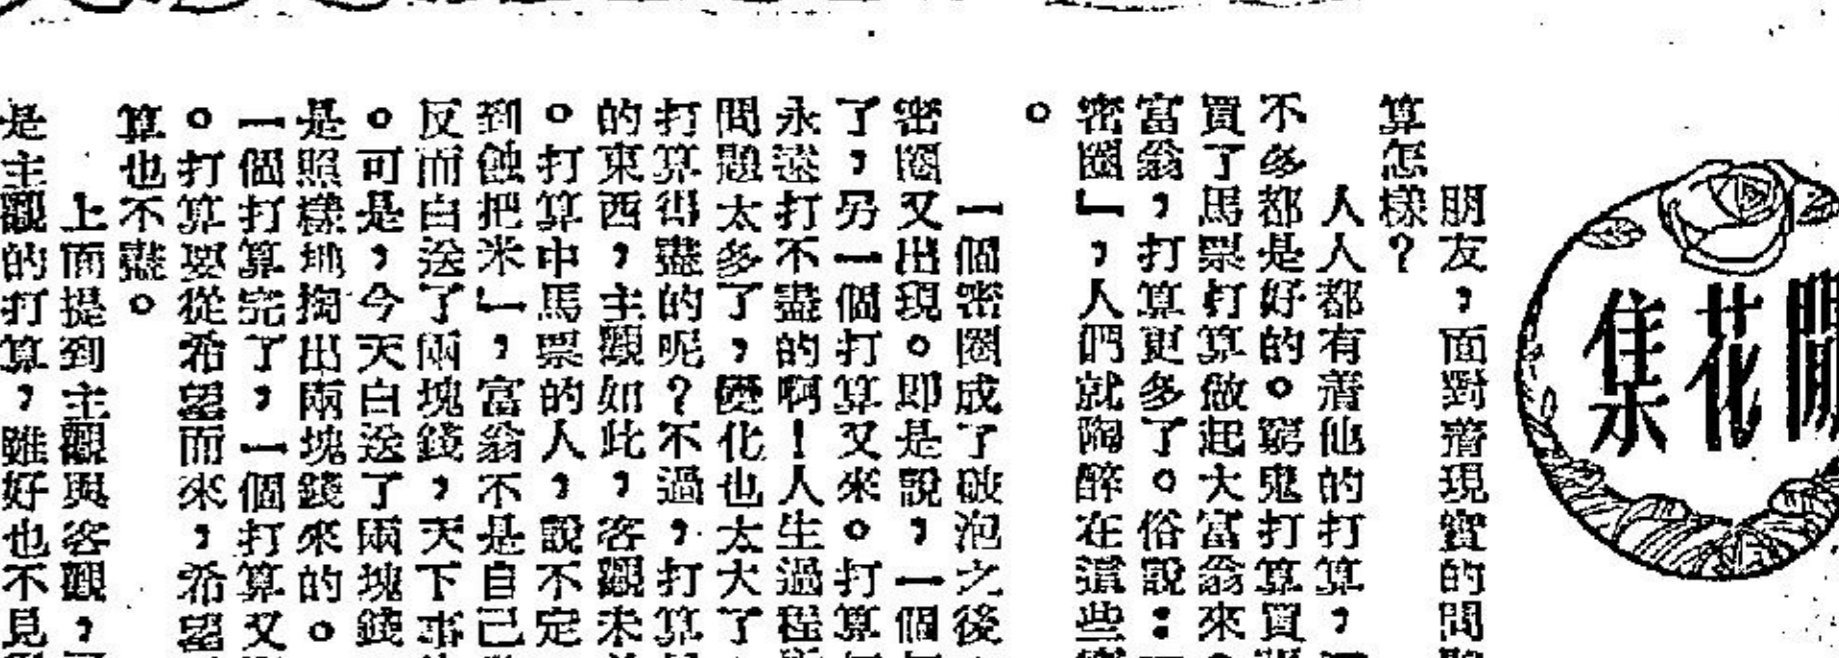 閒花集
朋友，面對着現實的問
算怎樣？
人人都有着他的打算，
不多都是好的。窮鬼打算買
買了馬票打算做起大富翁來
富翁，打算更多了。俗說：
密圈」，人們就陶醉在這些
。
一個密圈成了破泡之後
密圈又出現。即是說，一個
了，另一個打算又來。打算
永遠打不盡的啊！人生過程
問題太多了，變化也太大了
打算得盡的呢？不過，打算
的東西，主觀如此，客觀未
。打算中馬票的人，說不定
到蝕把米」，富翁不是自己
反而白送了兩塊錢，天下事
。可是，今天白送了兩塊錢
是照樣地掏出兩塊錢來的。
一個打算完了，一個打算又
。打算要從希望而來，希望
算也不盡。
上面提到主觀與客觀，
是主觀的打算，雖好也不見